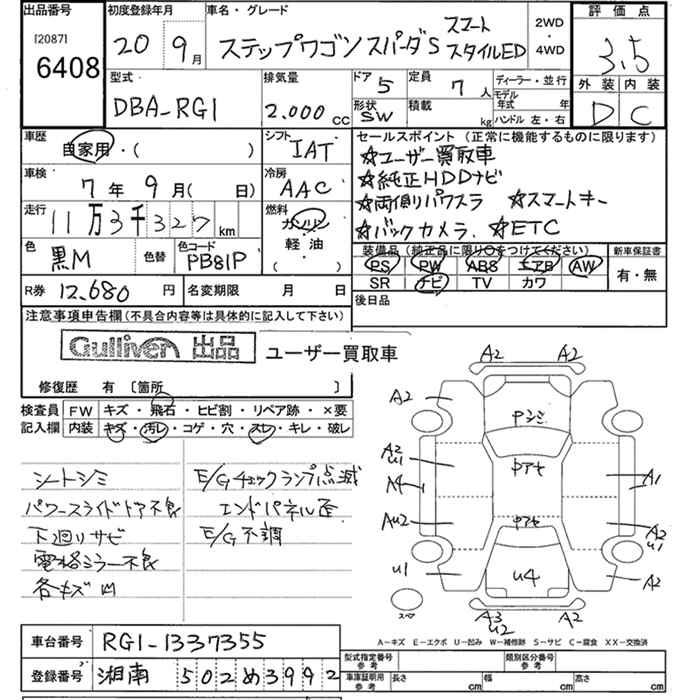 出品番号
[2087]
6408
初度登録年月
20年9月
車名・グレード
ステップワゴンスパーダS スマートスタイルED
2WD・4WD
評価点
3.5
外装 内装
D C
型式
DBA-RG1
排気量
2.000cc
ドア 5
形状 SW
定員 7人
積載 kg
ディーラー・並行
モデル年式 年
ハンドル 左・右
車歴
自家用・( )
シフト
IAT
車検
7年9月( 日)
冷房
AAC
走行
11万3千327km
燃料
ガソリン
軽油
( )
色
黒M
色替
色コード
PB81P
R券 12,680円
名変期限 月 日
セールスポイント (正常に機能するものに限ります)
☆ユーザー買取車
☆純正HDDナビ
☆両側りパワスラ ☆スマートキー
☆バックカメラ. ☆ETC
装備品 (純正品に限り○をつけてください)
PS PW ABS エアB AW
SR ナビ TV カワ
新車保証書
有・無
後日品
注意事項申告欄(不具合内容等は具体的に記入して下さい)
Gulliver 出品 ユーザー買取車
修復歴 有 〔箇所 〕
検査員記入欄
FW キズ・飛石・ヒビ割・リペア跡・×要
内装 キズ・汚レ・コゲ・穴・スレ・キレ・破レ
シートシミ
パワースライドドア不良
下廻りサビ
電格ミラー不良
各キズ凹
E/Gチェックランプ点滅
エンドパネル歪
E/G不調
A2 A2
A2
Pシミ
A2
U1
A4
中アセ
A1
AU2
中アセ
A2
U1
U1
U4
A2
スペア
A3
U2
A2
A-キズ E-エクボ U-凹み W-補修跡 S-サビ C-腐食 XX-交換済
車台番号 RG1-1337355
登録番号 湘南 502め3992
型式指定番号 参考
類別区分番号 参考
車庫証明用 参考 長さ cm 幅 cm 高さ cm